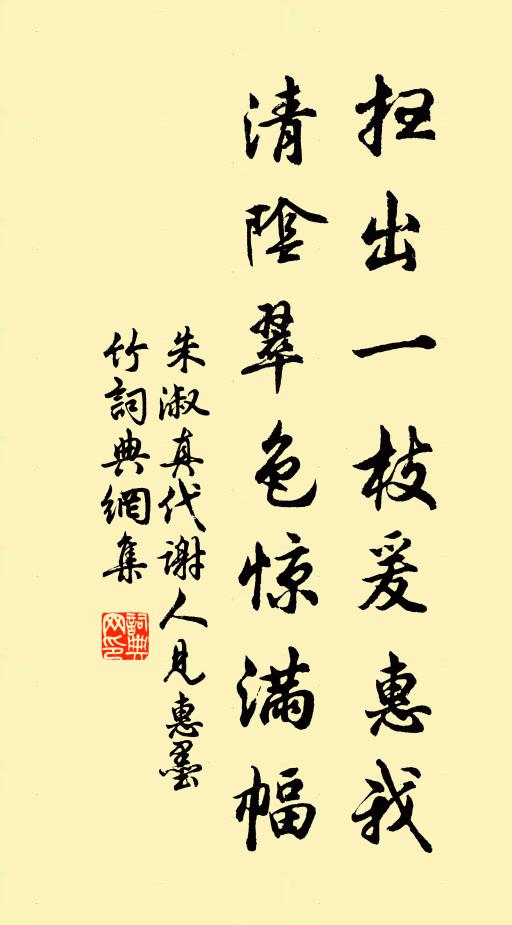 扫出一枝爰惠我
清阴翠色惊满幅
朱淑真代谢人见惠墨
竹詞典網集
詞典网印